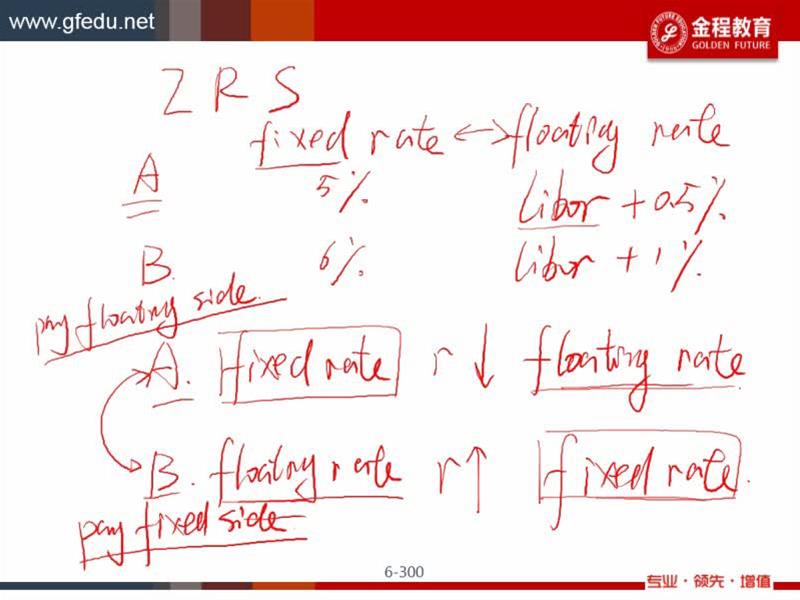 www.gfedu.net
金程教育
GOLDEN FUTURE
IRS
fixed rate ↔ floating rate
A 5% libor + 0.5%
B. 6% libor + 1%
pay floating side.
A. fixed rate r ↓ floating rate
B. floating rate r ↑ fixed rate.
pay fixed side
6-300
专业·领先·增值